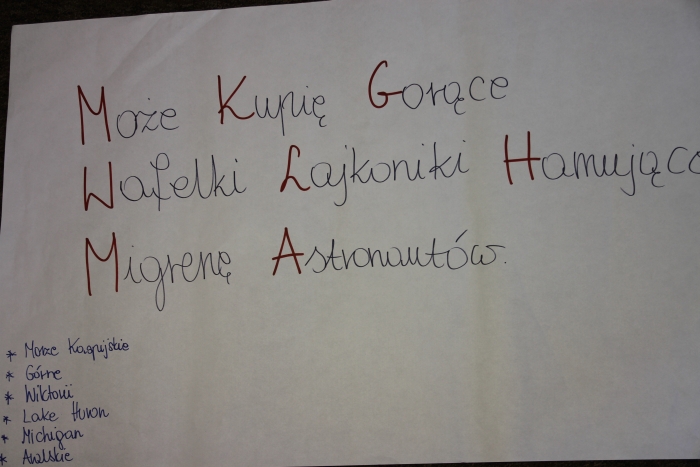 Może Kupię Gorące
Wafelki Łajkoniki Hamująco
Migrenę Astronautów.
* Morze Kaspijskie
* Górne
* Wiktorii
* Lake Huron
* Michigan
* Aralskie